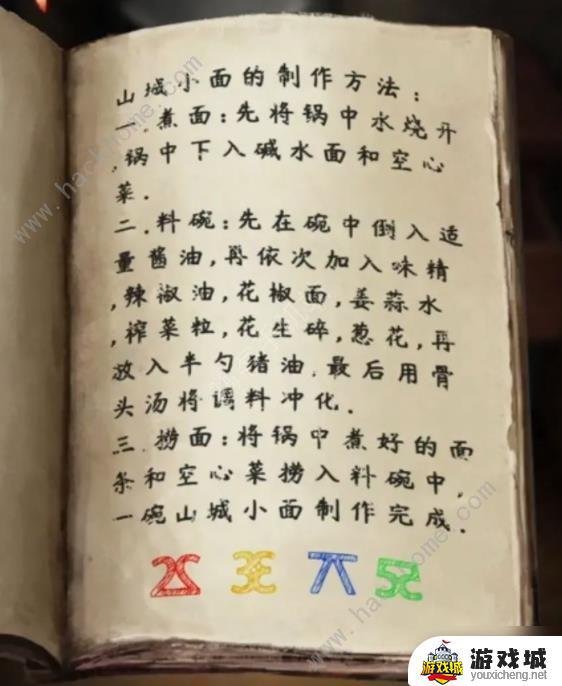 山城小面的制作方法：
一.煮面：先将锅中水烧开
,锅中下入碱水面和空心
菜.
二.料碗：先在碗中倒入适
量酱油,再依次加入味精
,辣椒油,花椒面,姜蒜水
,榨菜粒,花生碎,葱花,再
放入半勺猪油.最后用骨
头汤将调料冲化.
三.捞面：将锅中煮好的面
条和空心菜捞入料碗中,
一碗山城小面制作完成.
www.hackhome.com
www.hackhome.com
www.hackhome.com
游戏城
游戏城
youxicheng.net